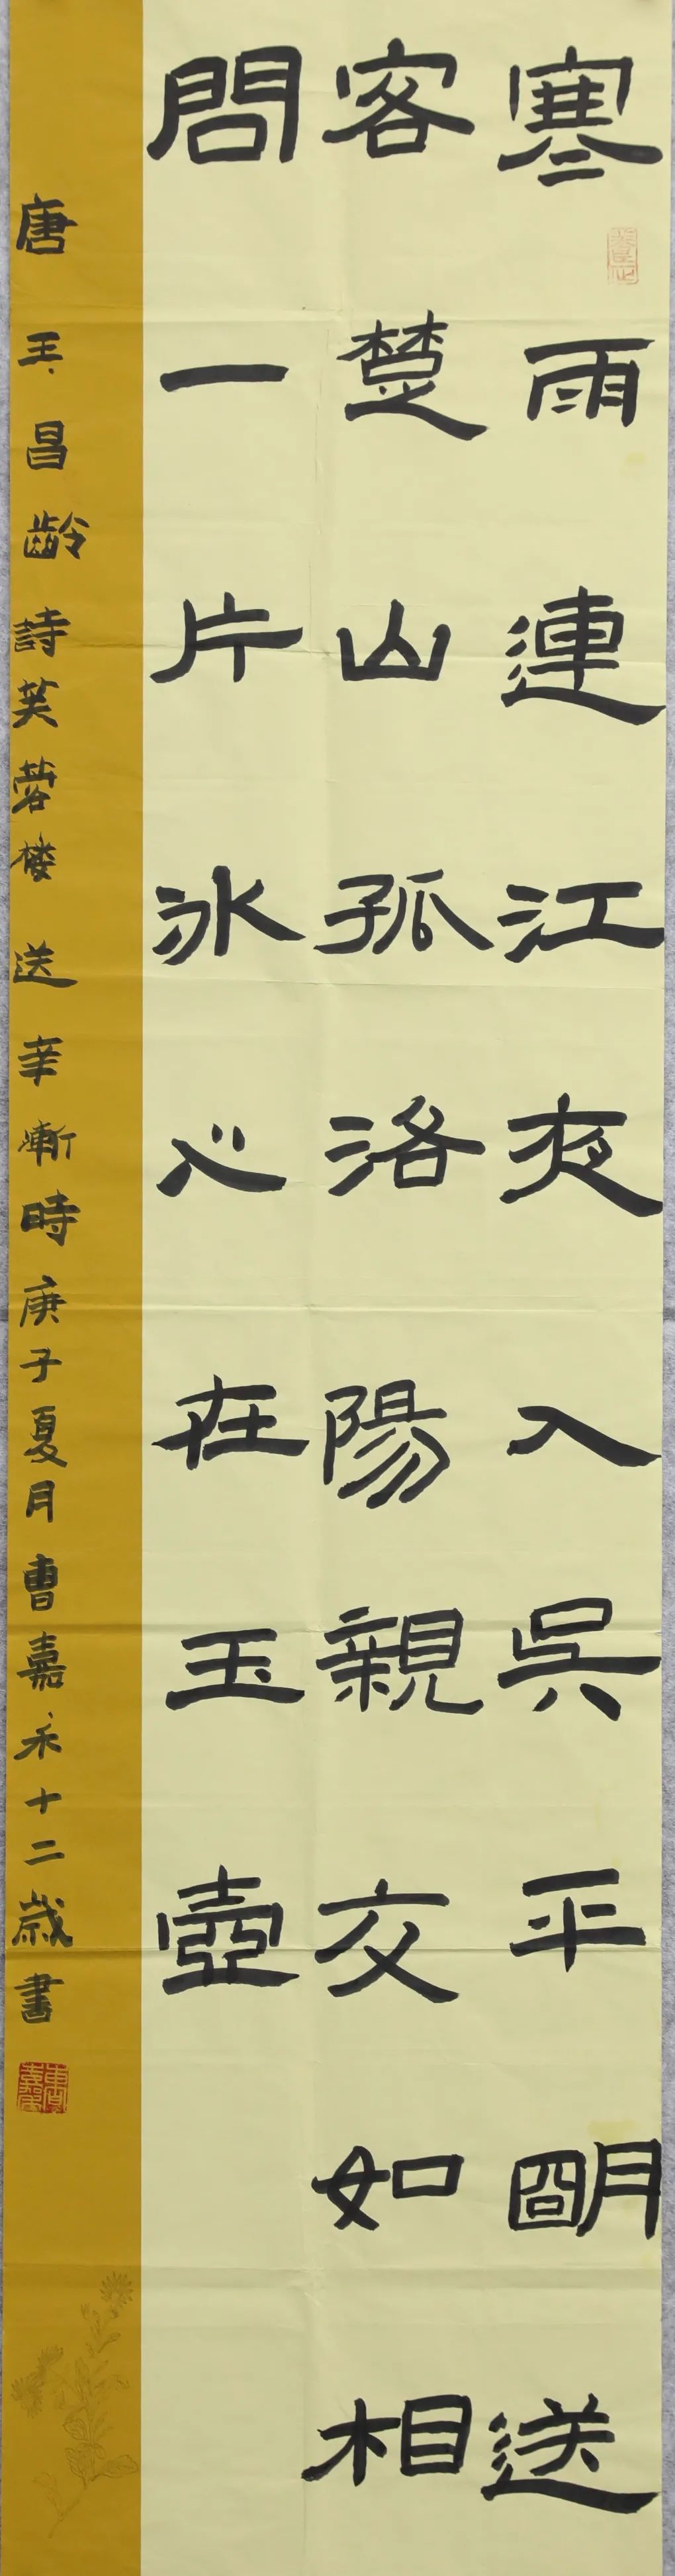 寒雨連江夜入吳平明送
客楚山孤洛陽親友如相
問一片冰心在玉壺
唐王昌齡詩芙蓉楼送辛漸時庚子夏月曹嘉禾十二歲書